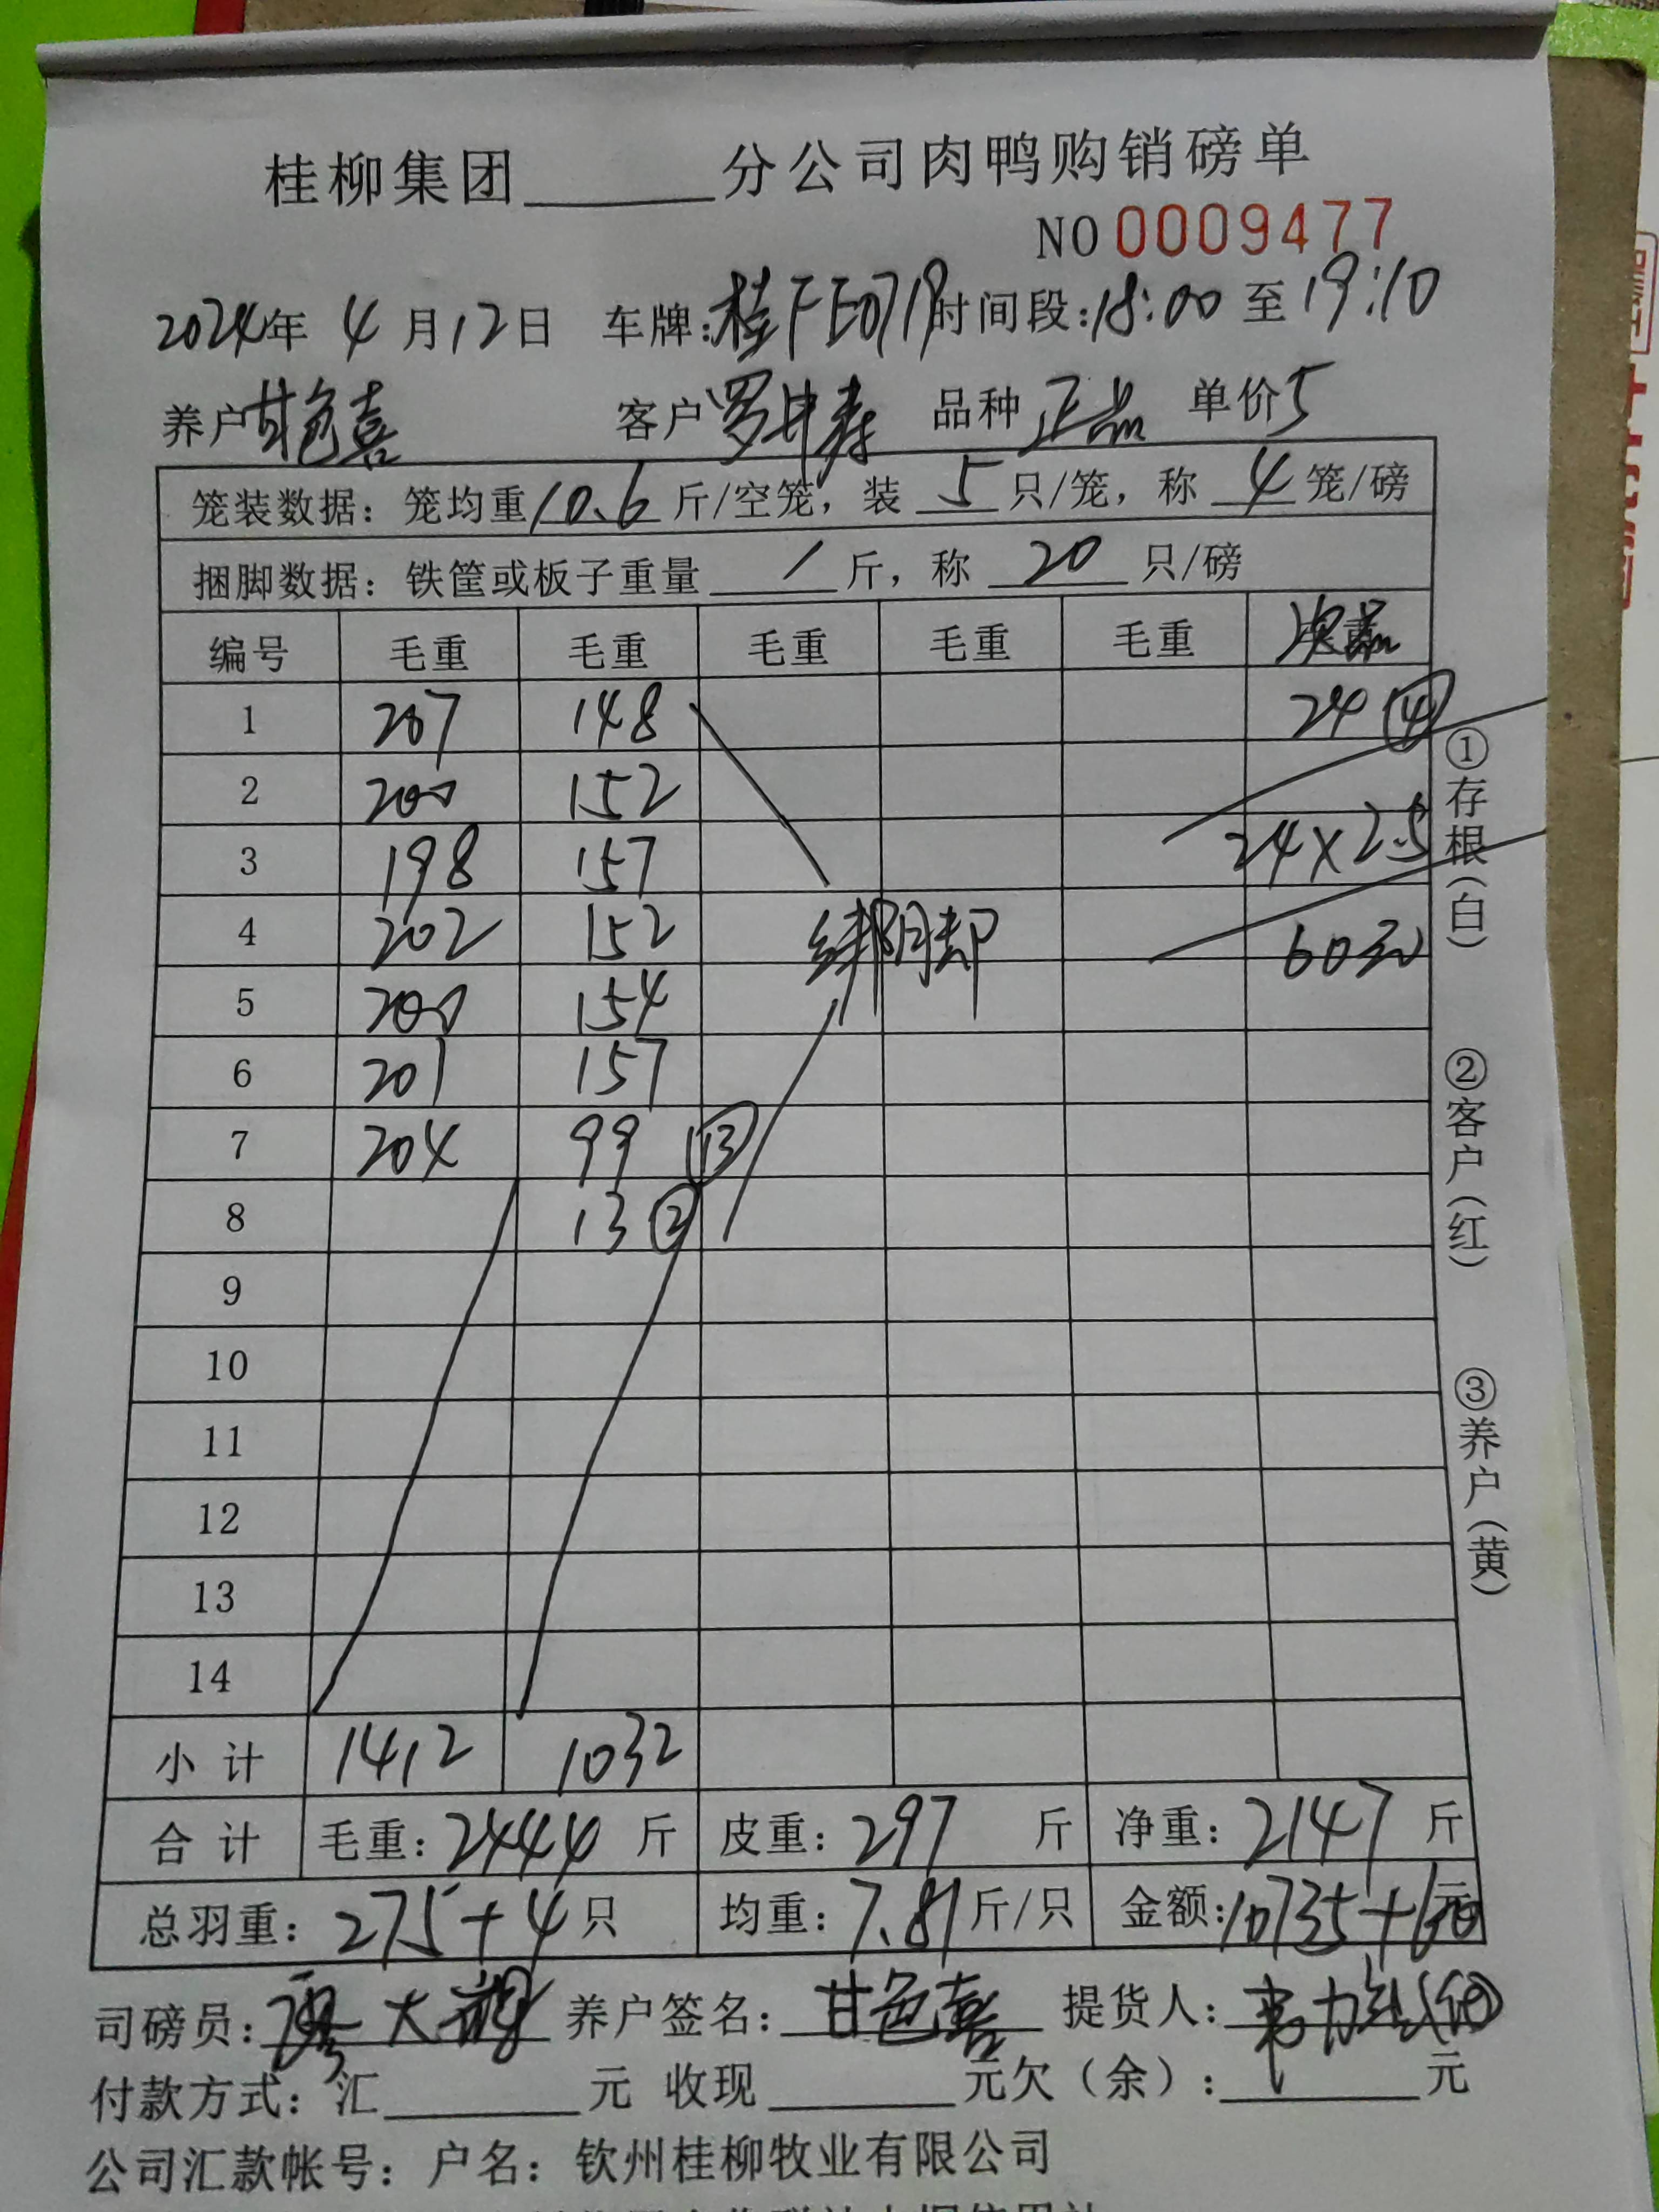 桂柳集团______分公司肉鸭购销磅单
NO 0009477
2024年 4 月12日 车牌:桂FE0719 时间段:18:00 至 19:10
养户甘色喜 客户 罗 寿 品种 正品 单价5
笼装数据: 笼均重10.6斤/空笼, 装 5 只/笼, 称 4 笼/磅
捆脚数据: 铁筐或板子重量 / 斤, 称 20 只/磅
编号 毛重 毛重 毛重 毛重 毛重 次品
1 207 148 24 ④
2 200 152
3 198 157 24×2.5
4 202 152 绑脚 60元
5 200 154
6 201 157
7 204 99 ⑬
8 13 ②
9
10
11
12
13
14
小 计 1412 1032
合 计 毛重: 2444 斤 皮重: 297 斤 净重: 2147 斤
总羽重: 275+4 只 均重: 7.81 斤/只 金额: 10735+60元
司磅员: 大 养户签名: 甘色喜 提货人:
付款方式: 汇______元 收现______元欠(余):______元
公司汇款帐号: 户名: 钦州桂柳牧业有限公司
①存根(白)
②客户(红)
③养户(黄)